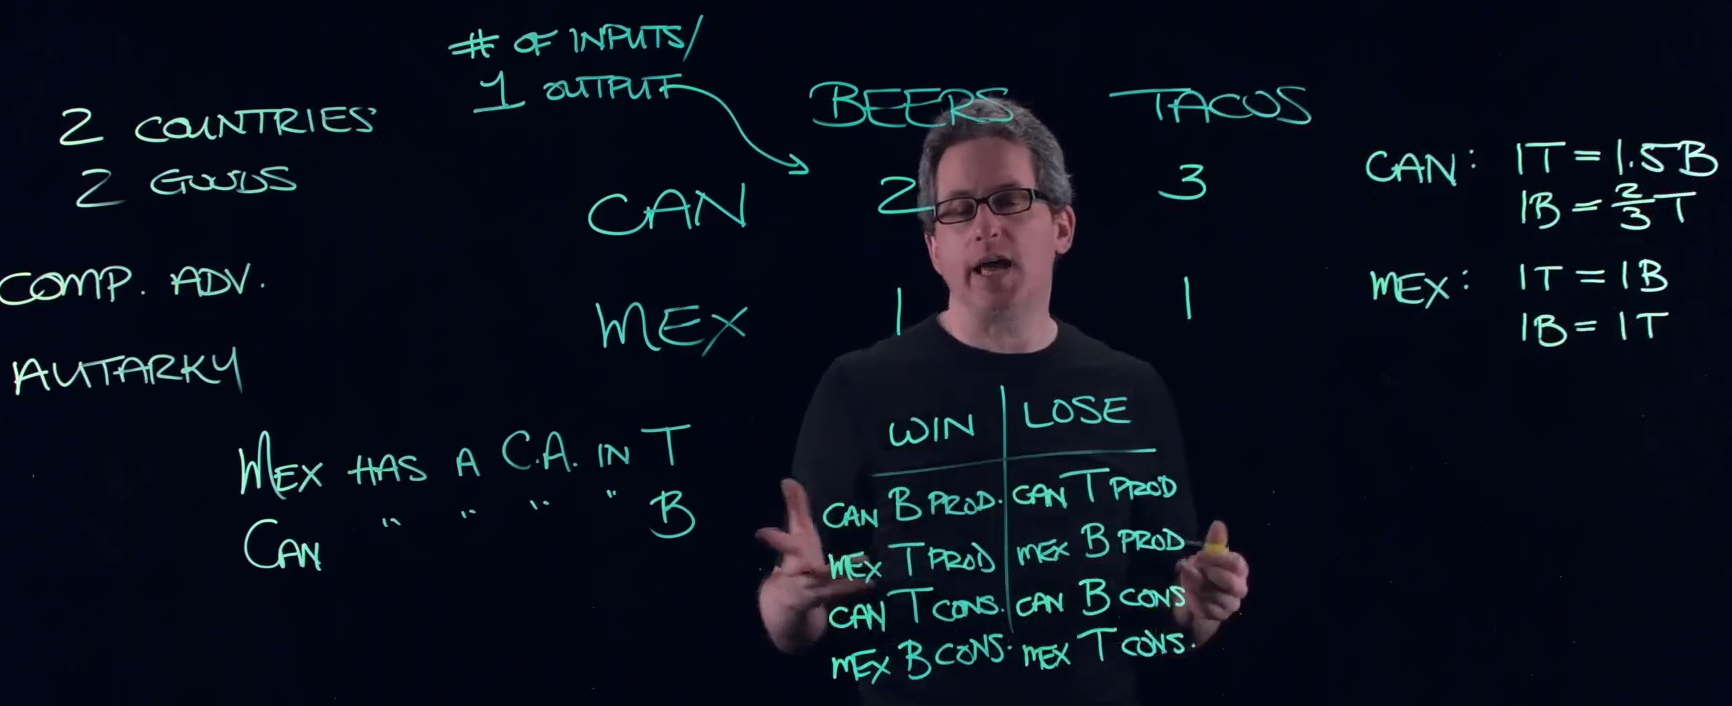 # OF INPUTS/
1 OUTPUT
2 COUNTRIES
2 GOODS
COMP. ADV.
AUTARKY
BEERS TACOS
CAN 2 3
MEX 1 1
CAN: 1T = 1.5B
1B = 2/3 T
MEX: 1T = 1B
1B = 1T
MEX HAS A C.A. IN T
CAN " " " " B
WIN LOSE
CAN B PROD. CAN T PROD
MEX T PROD MEX B PROD
CAN T CONS. CAN B CONS
MEX B CONS. MEX T CONS.